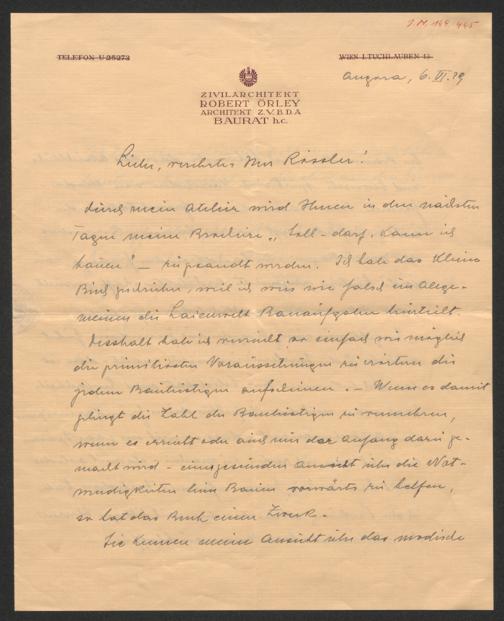 I.N. 169.445
TELEFON U 25273
WIEN I. TUCHLAUBEN 13.
Angora, 6. VI. 29
ZIVILARCHITEKT
ROBERT ÖRLEY
ARCHITEKT Z.V. B.D.A
BAURAT h.c.
Lieber, verehrter Herr Rössler!
Durch mein Atelier wird Ihnen in den nächsten
Tagen meine Broschüre „Soll - darf, kann ich
bauen" — zugesandt werden. Ich habe das kleine
Buch geschrieben, weil ich weiss wie falsch im Allge-
meinen die Laienwelt Bauaufgaben beurteilt.
Desshalb habe ich versucht so einfach wie möglich
die primitivsten Voraussetzungen zu erörtern die
jedem Baulustigen aufscheinen. — Wenn es damit
gelingt die Zahl der Baulustigen zu vermehren,
wenn es erreicht oder auch nur der Anfang darin ge-
macht wird - einer gesunden Ansicht über die Not-
wendigkeiten beim Bauen vorwärts zu helfen,
so hat das Buch einen Zweck.
Sie kennen meine Ansicht über das modische